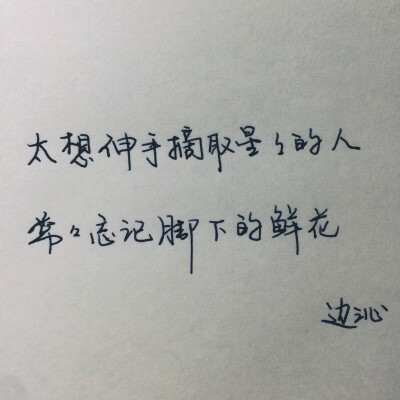 太想伸手摘取星々的人
常々忘记脚下的鲜花
边沁